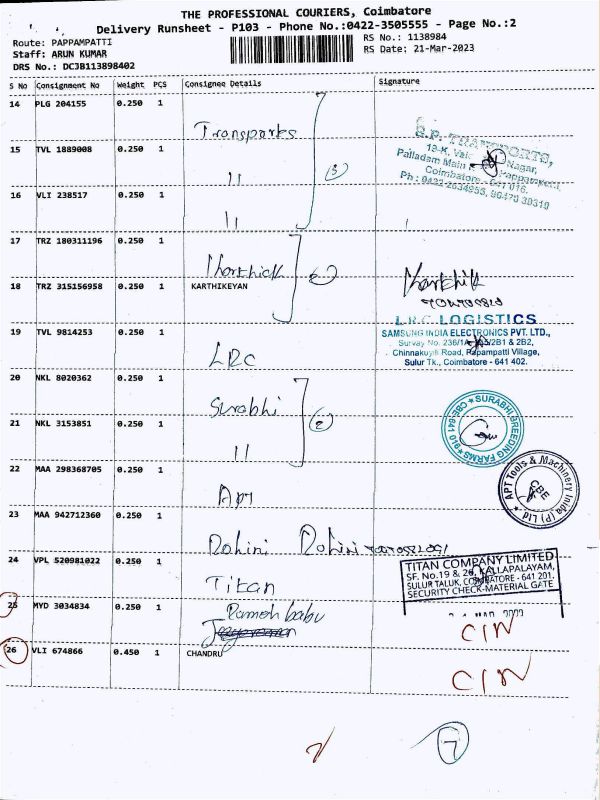 THE PROFESSIONAL COURIERS, Coimbatore
Delivery Runsheet - P103 - Phone No.:0422-3505555 - Page No.:2
Route: PAPPAMPATTI
Staff: ARUN KUMAR
DRS No.: DCJB113898402
RS No.: 1138984
RS Date: 21-Mar-2023
S No Consignment No Weight PCS Consignee Details Signature
14 PLG 204155 0.250 1
Transports
15 TVL 1889008 0.250 1
"
16 VLI 238517 0.250 1
"
(3)
S.P. TRANSPORTS,
Nagar,
Palladam Main Pappampatti,
Coimbatore - 641 016.
Ph : 0422-2634955, 98470 30319
17 TRZ 180311196 0.250 1
Karthick
18 TRZ 315156958 0.250 1 KARTHIKEYAN
Karthik
19 TVL 9814253 0.250 1
LRC
L.R.C. LOGISTICS
SAMSUNG INDIA ELECTRONICS PVT. LTD.,
Survay No. 236/1A 2B1 & 2B2,
Chinnakuyili Road, Papampatti Village,
Sulur Tk., Coimbatore - 641 402.
20 NKL 8020362 0.250 1
Surabhi
21 NKL 3153851 0.250 1
"
(2)
SURABHI BREEDING FARMS
CBE-641 016
22 MAA 298368705 0.250 1
APT
APT Tools & Machinery India (P) Ltd
CBE
23 MAA 942712360 0.250 1
Rohini Rohini
24 VPL 520981022 0.250 1
Titan
TITAN COMPANY LIMITED
SF. No.19 & 26, KALLAPALAYAM,
SULUR TALUK, COIMBATORE - 641 201.
SECURITY CHECK-MATERIAL GATE
25 MYD 3034834 0.250 1
Ramesh babu
C/N
26 VLI 674866 0.450 1 CHANDRU
C/N
7